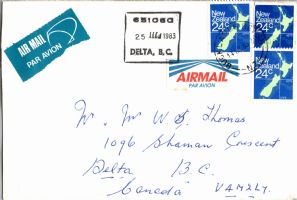 AIR MAIL
PAR AVION
651060
25 1983
DELTA, B.C.
New Zealand 24c
New Zealand 24c
New Zealand 24c
AIRMAIL
PAR AVION
Mr. Mr W S Thomas.
1096 Shaman Crescent
Delta B.C.
Canada